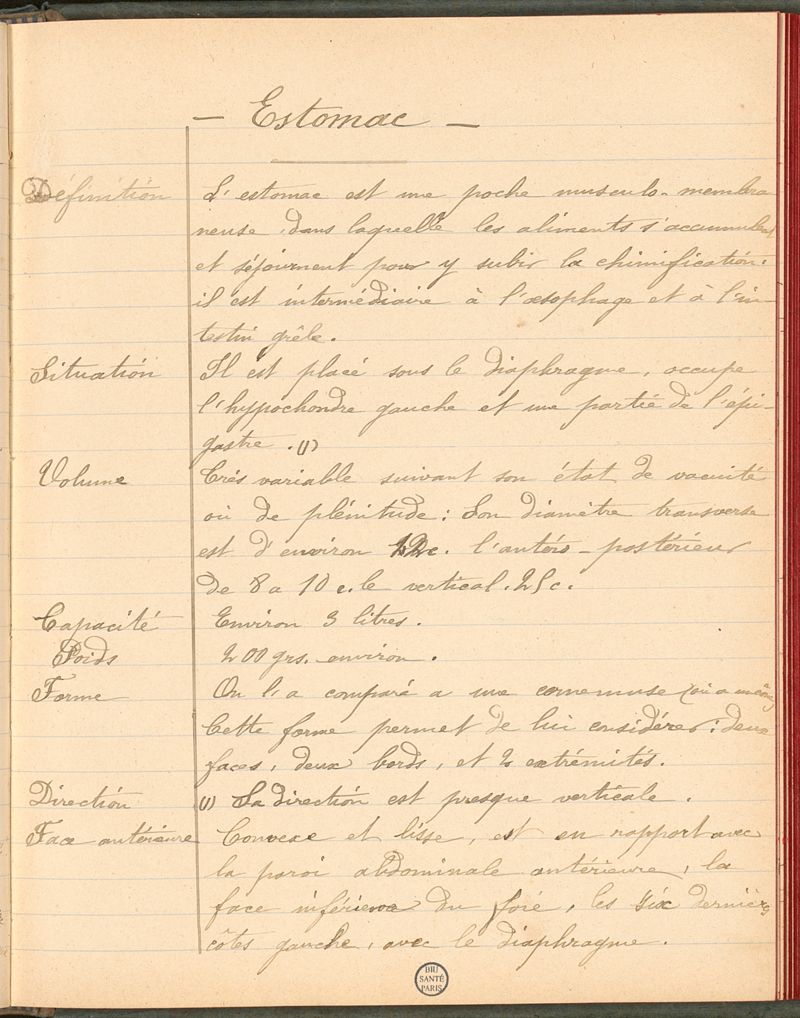 — Estomac —
Définition L'estomac est une poche musculo-membra
neuse, dans laquelle les aliments s'accumulent
et séjournent pour y subir la chimification:
il est intermédiaire à l'œsophage et à l'in-
testin grêle.
Situation Il est placé sous le diaphragme, occupe
l'hypochondre gauche et une partie de l'épi-
gastre. (1)
Volume Très variable suivant son état de vacuité
où de plénitude: Son diamètre transverse
est d'environ c. l'antéro-postérieur
de 8 a 10 c. le vertical. 25 c.
Capacité Environ 3 litres.
Poids 200 grs. environ.
Forme On l'a comparé a une cornemuse (où a un
Cette forme permet de lui considérer: deux
faces, deux bords, et 2 extrémités.
Direction (1) Sa direction est presque verticale.
Face antérieure Convexe et lisse, est en rapport avec
la paroi abdominale antérieure, la
face inférieure du foie, les six dernières
côtes gauche, avec le diaphragme.
BIU
SANTÉ
PARIS